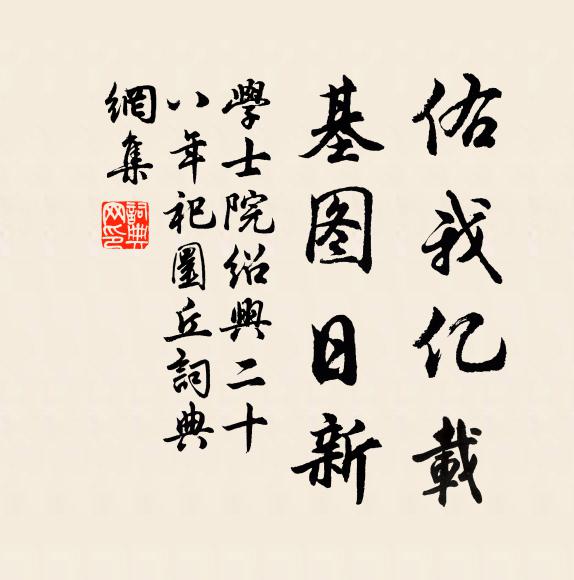 佑我亿載
基图日新
學士院绍興二十
八年祀圜丘詞典
網集
詞典網印